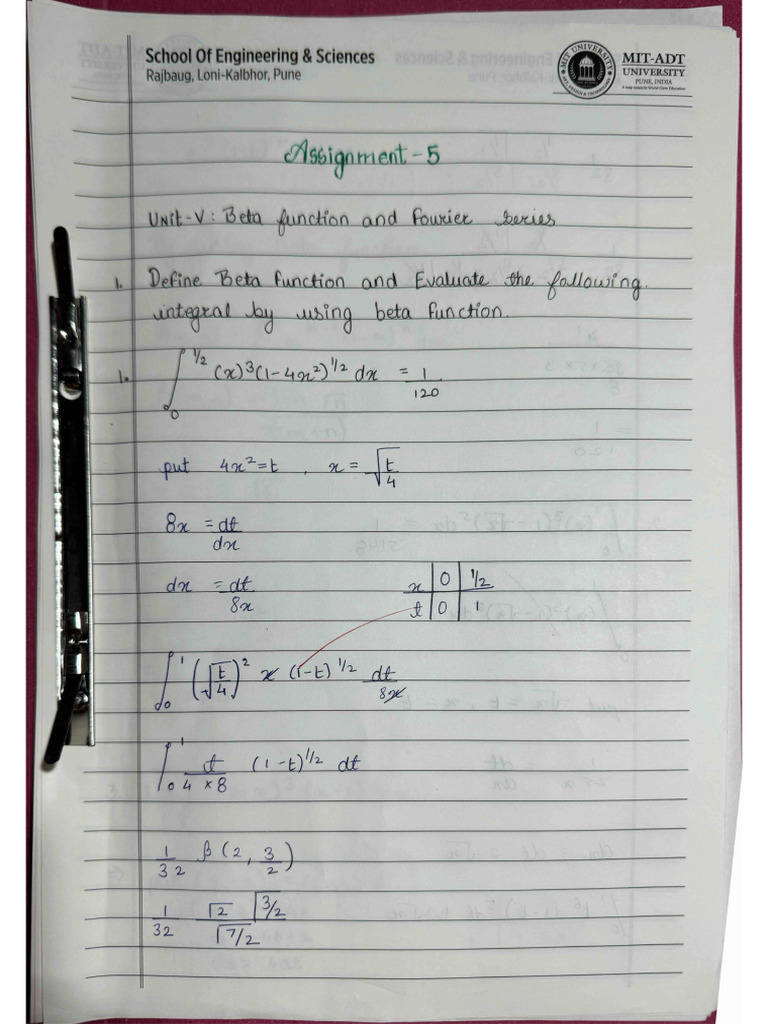 School Of Engineering & Sciences
Rajbaug, Loni-Kalbhor, Pune
MIT-ADT
UNIVERSITY
PUNE, INDIA
Assignment-5
Unit-V: Beta function and Fourier series
1. Define Beta function and Evaluate the following.
integral by using beta function.
1. ∫₀^1/2 (x)³(1-4x²)^1/2 dx = 1/120
put 4x² = t , x = √(t/4)
8x = dt/dx
dx = dt/8x
x | 0 | 1/2
t | 0 | 1
∫₀^1 (√(t/4))² x (1-t)^1/2 dt/8x
∫₀^1 t/(4 × 8) (1-t)^1/2 dt
1/32 β(2, 3/2)
1/32 Γ2 Γ3/2 / Γ7/2